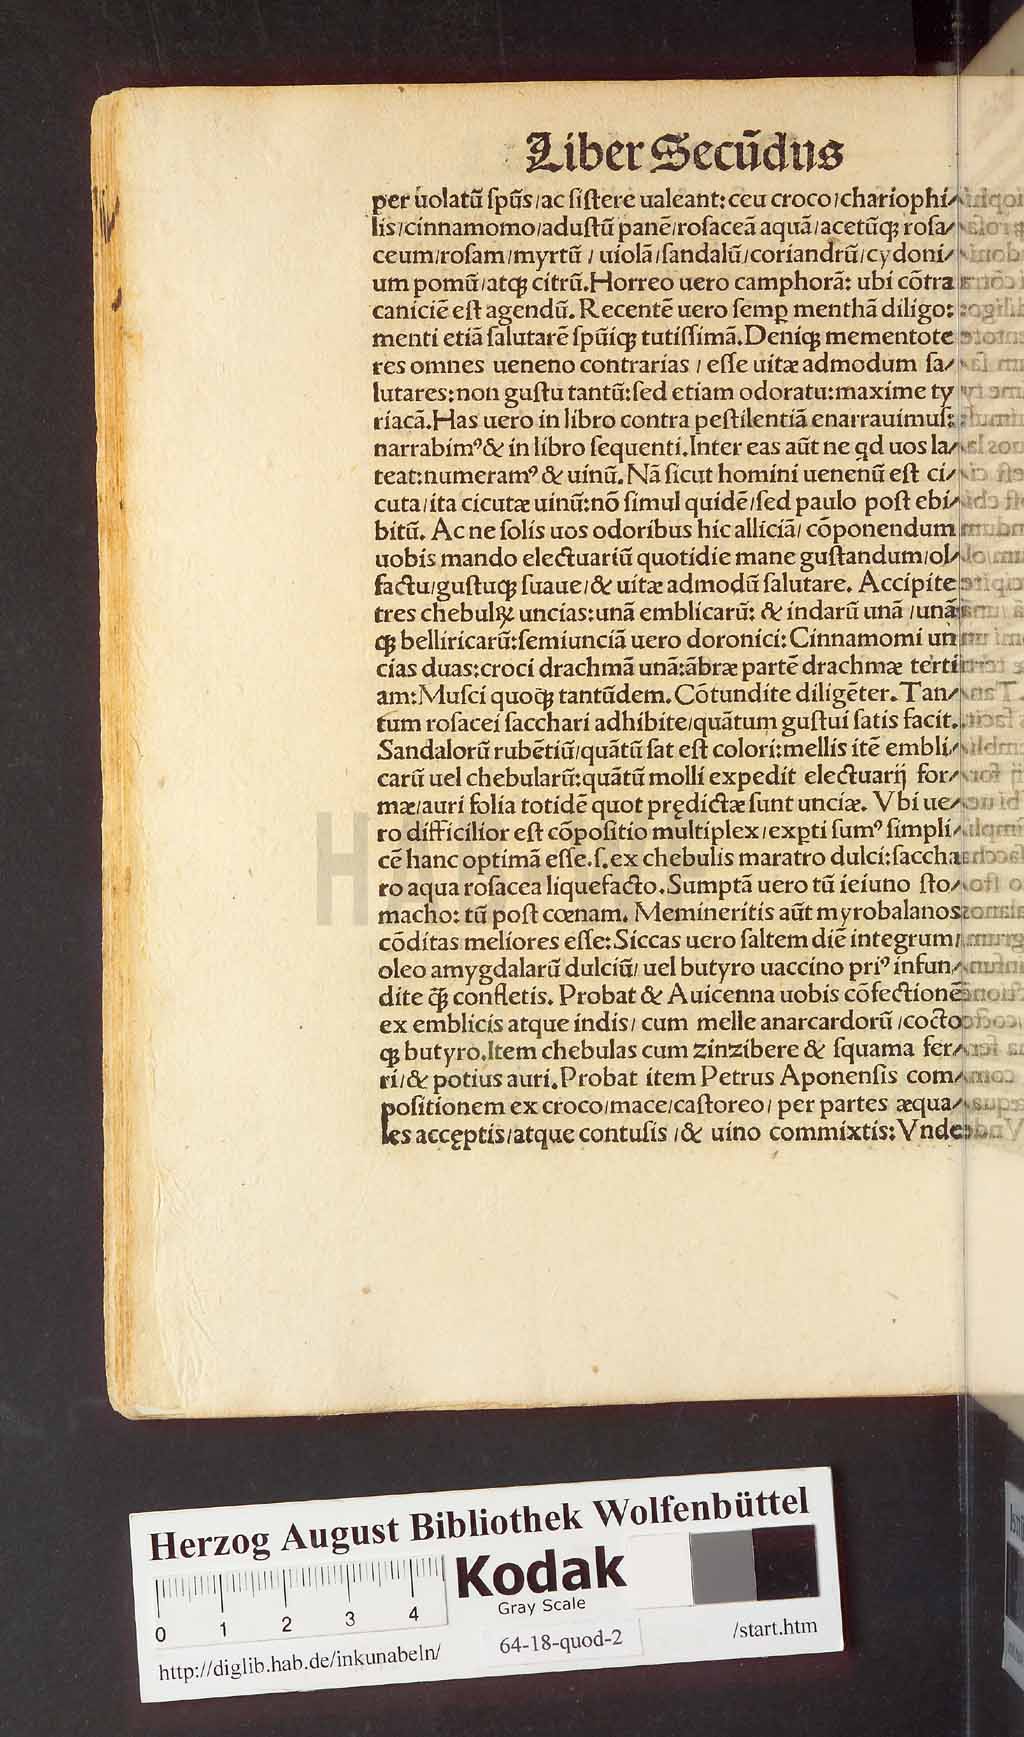 Liber Secūdus
per uolatū ſpūs/ac ſiſtere ualeant: ceu croco/chariophi⸗
lis/cinnamomo/aduſtū panē/roſaceā aquā/acetūqꝫ roſa⸗
ceum/roſam/myrtū / uiolā/ſandalū/coriandrū/cydoni⸗
um pomū/atqꝫ citrū. Horreo uero camphorā: ubi cōtra
caniciē eſt agendū. Recentē uero ſemꝑ menthā diligo:
menti etiā ſalutarē ſpūiqꝫ tutiſſimā. Deniqꝫ mementote
res omnes ueneno contrarias / eſſe uitæ admodum ſa⸗
lutares: non guſtu tantū: ſed etiam odoratu: maxime ty
riacā. Has uero in libro contra peſtilentiā enarrauimuſ:
narrabimꝰ & in libro ſequenti. Inter eas aūt ne qd uos la⸗
teat: numeramꝰ & uinū. Nā ſicut homini uenenū eſt ci⸗
cuta/ita cicutæ uinū: nō ſimul quidē/ſed paulo poſt ebi⸗
bitū. Ac ne ſolis uos odoribus hic alliciā/ cōponendum
uobis mando electuariū quotidie mane guſtandum/ol⸗
factu/guſtuqꝫ ſuaue/& uitæ admodū ſalutare. Accipite
tres chebulꝝ uncias: unā emblicarū: & indarū unā /unā
qꝫ belliricarū: ſemiunciā uero doronici: Cinnamomi un
cias duas: croci drachmā unā: ābræ partē drachmæ terti
am: Muſci quoqꝫ tantūdem. Cōtundite diligēter. Tan⸗
tum roſacei ſacchari adhibite/quātum guſtui ſatis facit.
Sandalorū rubētiū/quātū ſat eſt colori: mellis itē embli⸗
carū uel chebularū: quātū molli expedit electuarij for⸗
mæ/auri folia totidē quot prędictæ ſunt unciæ. Vbi ue⸗
ro difficilior eſt cōpoſitio multiplex/exꝑti ſumꝰ ſimpli⸗
cē hanc optimā eſſe. ſ. ex chebulis maratro dulci: ſaccha
ro aqua roſacea liquefacto. Sumptā uero tū ieiuno ſto⸗
macho: tū poſt cœnam. Memineritis aūt myrobalanos
cōditas meliores eſſe: Siccas uero ſaltem diē integrum/
oleo amygdalarū dulciū/ uel butyro uaccino priꝰ infun⸗
dite q̄ꝫ confletis. Probat & Auicenna uobis cōfectionē
ex emblicis atque indis/ cum melle anarcardorū /cocto
qꝫ butyro. Item chebulas cum zinzibere & ſquama fer⸗
ri/& potius auri. Probat item Petrus Aponenſis com⸗
poſitionem ex croco/mace/caſtoreo/ per partes æqua⸗
les accęptis/atque contuſis /& uino commixtis: Vnde
HAB
Herzog August Bibliothek Wolfenbüttel
Kodak
Gray Scale
0 1 2 3 4
http://diglib.hab.de/inkunabeln/
64-18-quod-2
/start.htm